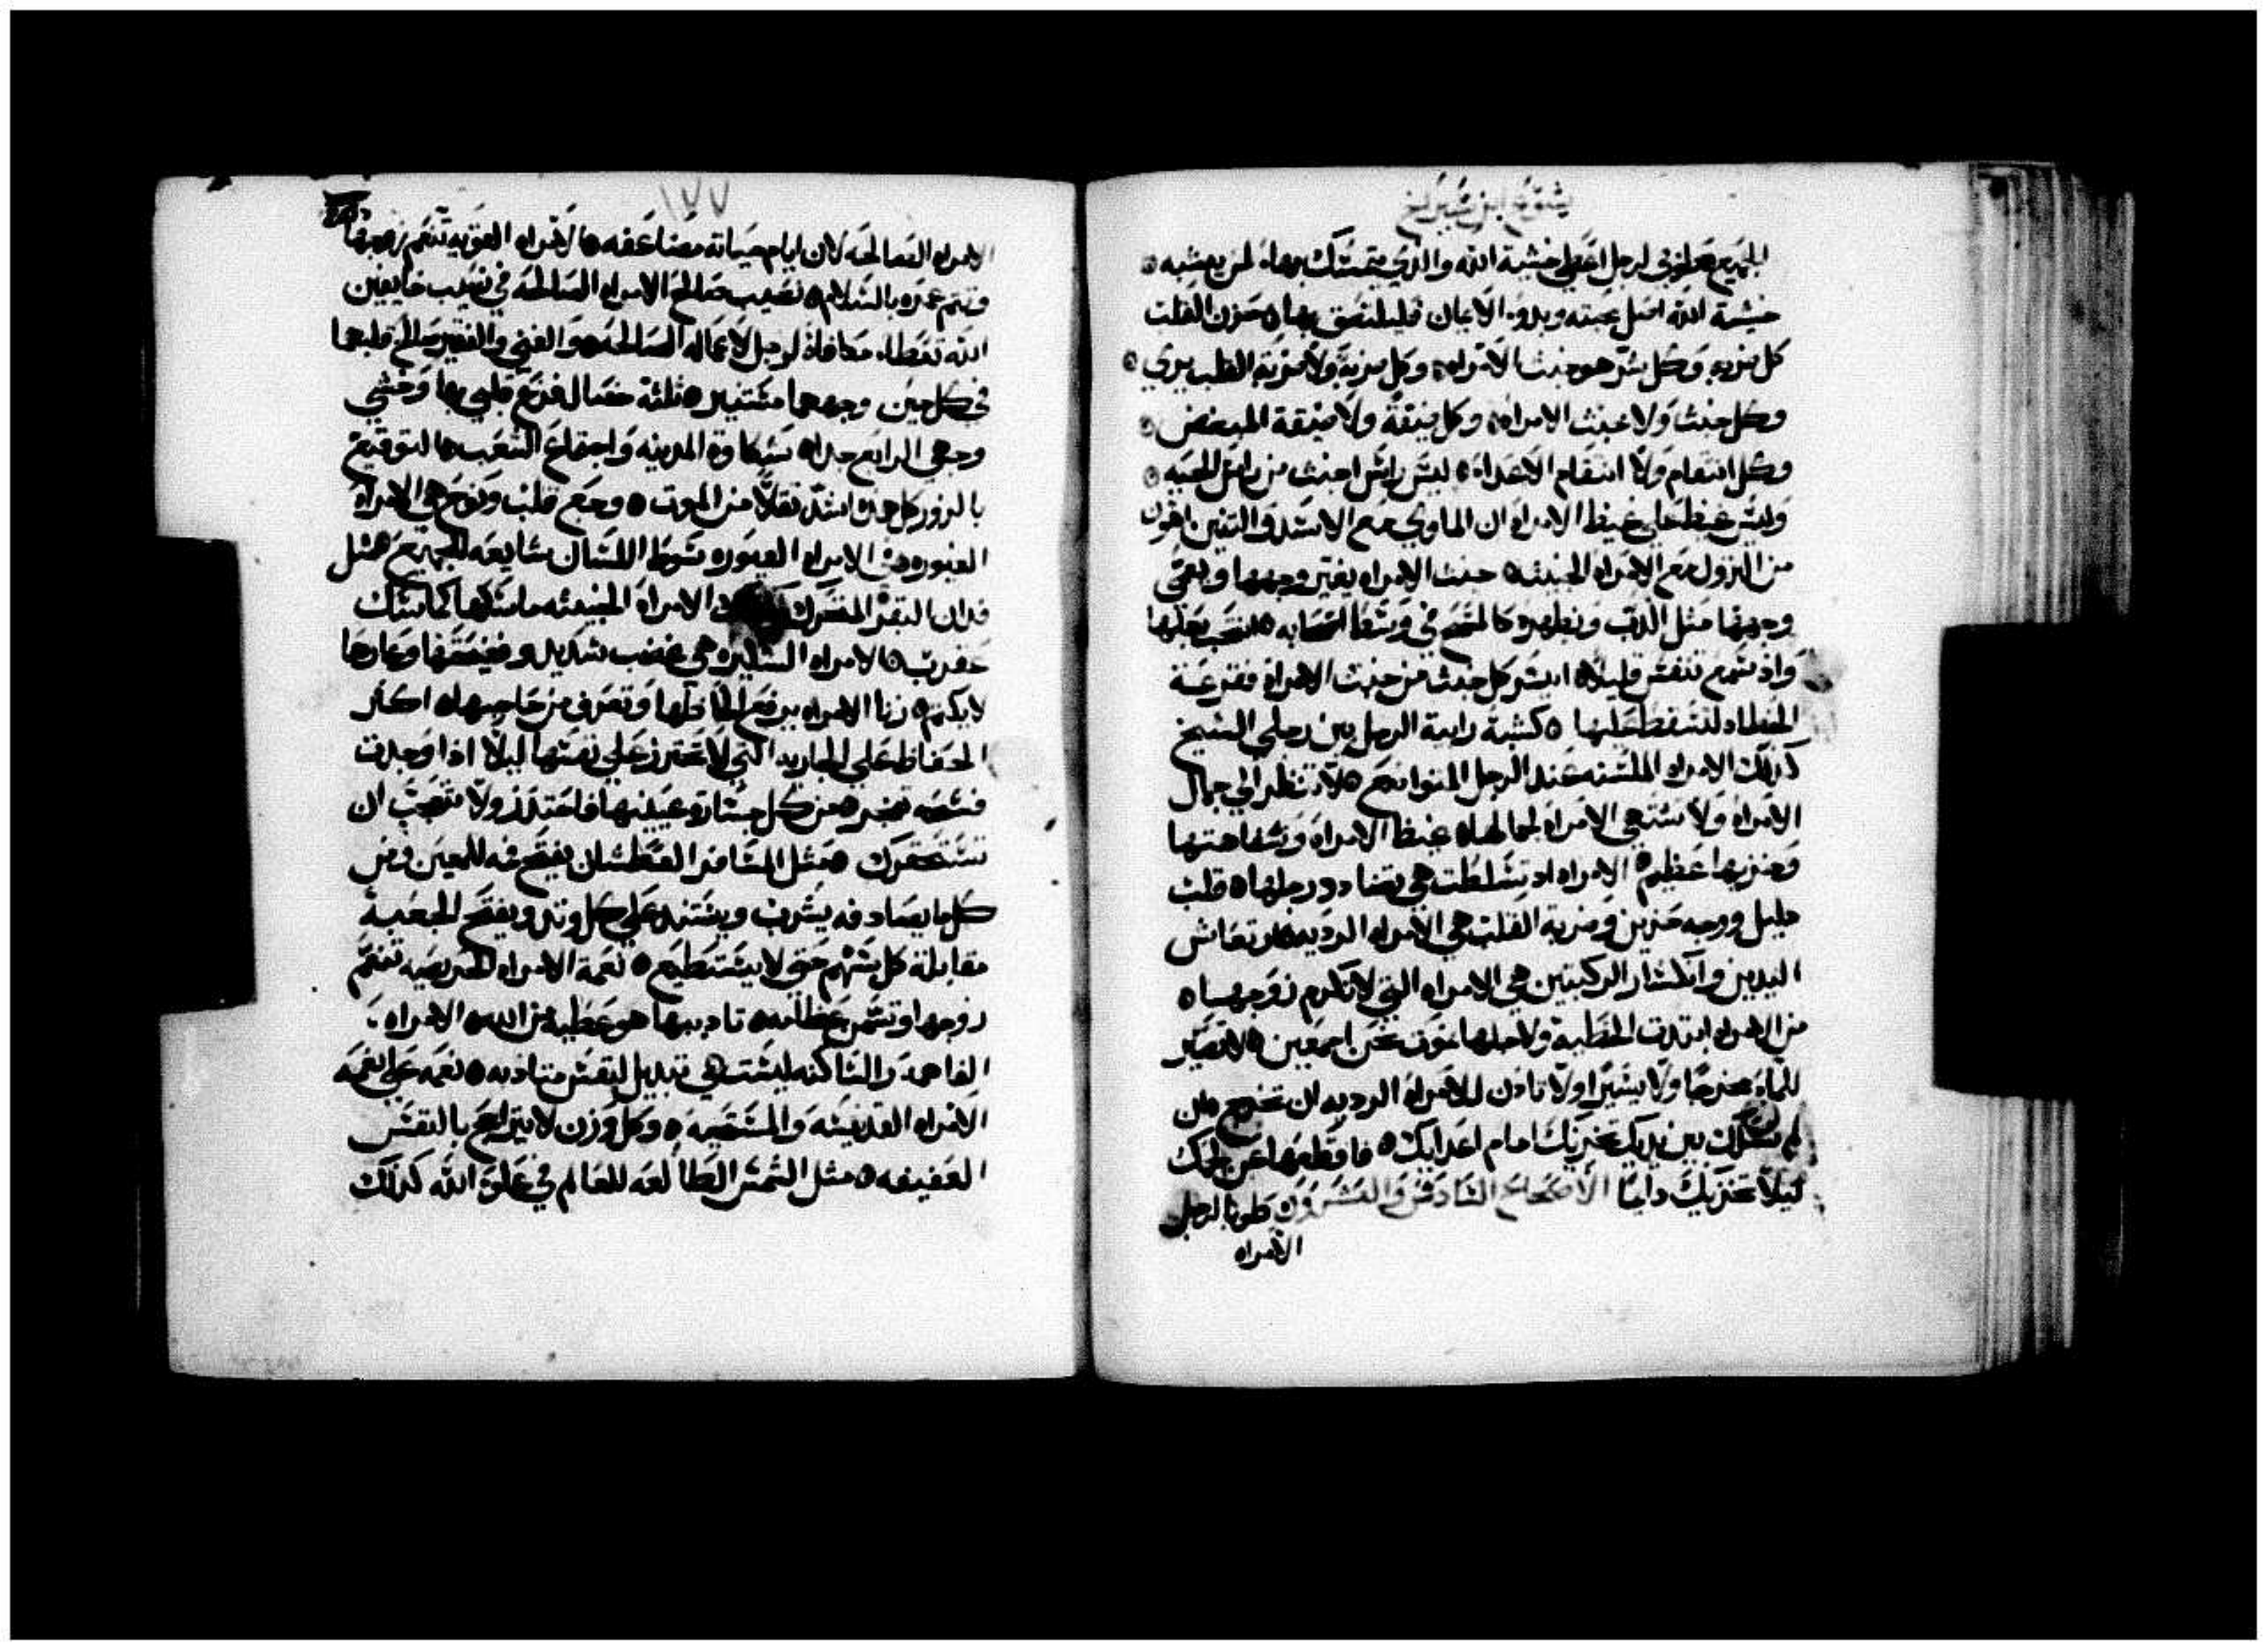 يشوع ابن شيراخ
الجميع طوبى لرجل اعطي خشية الله والذي يتمسك بها لمن يشبه
خشية الله اصل محبته وبدو الايمان فليلتصق بها حزن القلب
كل ضربه وكل شر هو خبث الامراه وكل ضربة ولا ضربة القلب يري
وكل خبث ولا خبث الامراه وكل ضيقة ولا ضيقة المبغض
وكل انتقام ولا انتقام الاعداء ليس راس اخبث من راس الحيه
وليس غيظ علي غيظ الامراه ان الماوي مع الاسد والتنين اهون
من النزول مع الامراه الخبيثه خبث الامراه يغير وجهها ويعمي
وجهها مثل الدب وتظهره كالمسح في وسط اصحابه انتحب بعلها
واذ سمع تنفس قليلا ايسر كل خبث من خبث الامراة فقرعة
الخطاه لتسقط عليها كشبة رابية الرمل بين رجلي الشيخ
كذلك الامراه الملسنه عند الرجل المتواضع لا تنظر الي جمال
الامراه ولا تشتهي الامراه لجمالها غيظ الامراه وسفاهتها
وخزيها عظيم الامراه اذ تسلطت هي تضادد رجلها قلب
ذليل ووجه حزين وضربة القلب هي الامراه الرديه ارتعاش
اليدين وانكسار الركبتين هي الامراه التي لا تكرم زوجها
من الامراه ابتدت الخطية ولاجلها نموت نحن اجمعين لا تصير
للماء مخرجا ولا يسيرا ولا تاذن للامراه الرديه ان تخرج ان
لم تسلك بين يديك تخزيك امام اعدايك فاقطعها عن لحمك
ليلا تخزيك دايما الاصحاح السادس والعشرون طوبا لرجل
الامراه
١٧٧
الامراه الصالحه لان ايام حياته مضاعفه الامراه القويه تنعم زوجها
وتتم عمره بالسلام نصيب صالح الامراه الصالحة في نصيب خايفين
الله تعطا مكافاة لرجل لاعماله الصالحه والغني والفقير صالح قلبهما
في كل حين وجههما مستنير ثلثه خصال فزع قلبي بها وخشي
وجهي الرابع جدا شكاوة المدينه واجتماع الشعب التوقيع
بالزور كل هذه اشد ثقلا من الموت وجع قلب ونوح هي الامراه
الغيوره في الامراه الغيوره سوط اللسان شايعه للجميع مثل
فدان البقر المتحرك الامراه الخبيثه ماسكها كماسك
عقرب الامراه السكيره هي غضب شديد وفضيحتها وعارها
لا يكتم زنا الامراه برفع الحاظها وتعرف من حاجبيها اكثر
الحفاظ علي الجاريه التي لا تحترز علي نفسها ليلا اذا وجدت
فسحه تفجر من كل جسارة عينيها فاحترز ولا تتعجب ان
تستحقرك مثل المسافر العطشان يفتح فمه للعين ومن
كلما يصادفه يشرب ويستند علي كل وتد ويفتح الجعبة
مقابلة كل سهم حتي لا يستطيع نعمة الامراه الحريصه تنعم
زوجها وتسمن عظامه تاديبها هو عطية من الله الامراه
الفاهمه والساكنه ليست هي تبديل لنفس متادبه نعمه علي نعمه
الامراه القديسه والمستحيه وكل وزن لا يتراجح بالنفس
العفيفه مثل الشمس الطالعه للعالم في علو الله كذلك